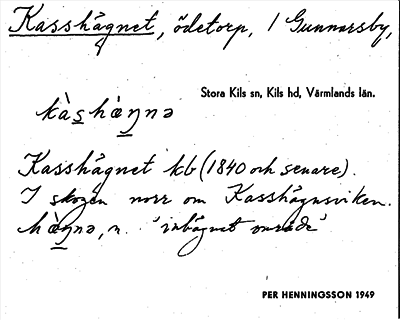 Kasshägnet, ödetorp, i Gunnarsby,
Stora Kils sn, Kils hd, Värmlands län.
kàshæ̀ŋnə
Kasshägnet kb (1840 och senare).
I skogen norr om Kasshägnsviken.
hæ̀ŋnə, n. 'inhägnat område'
PER HENNINGSSON 1949